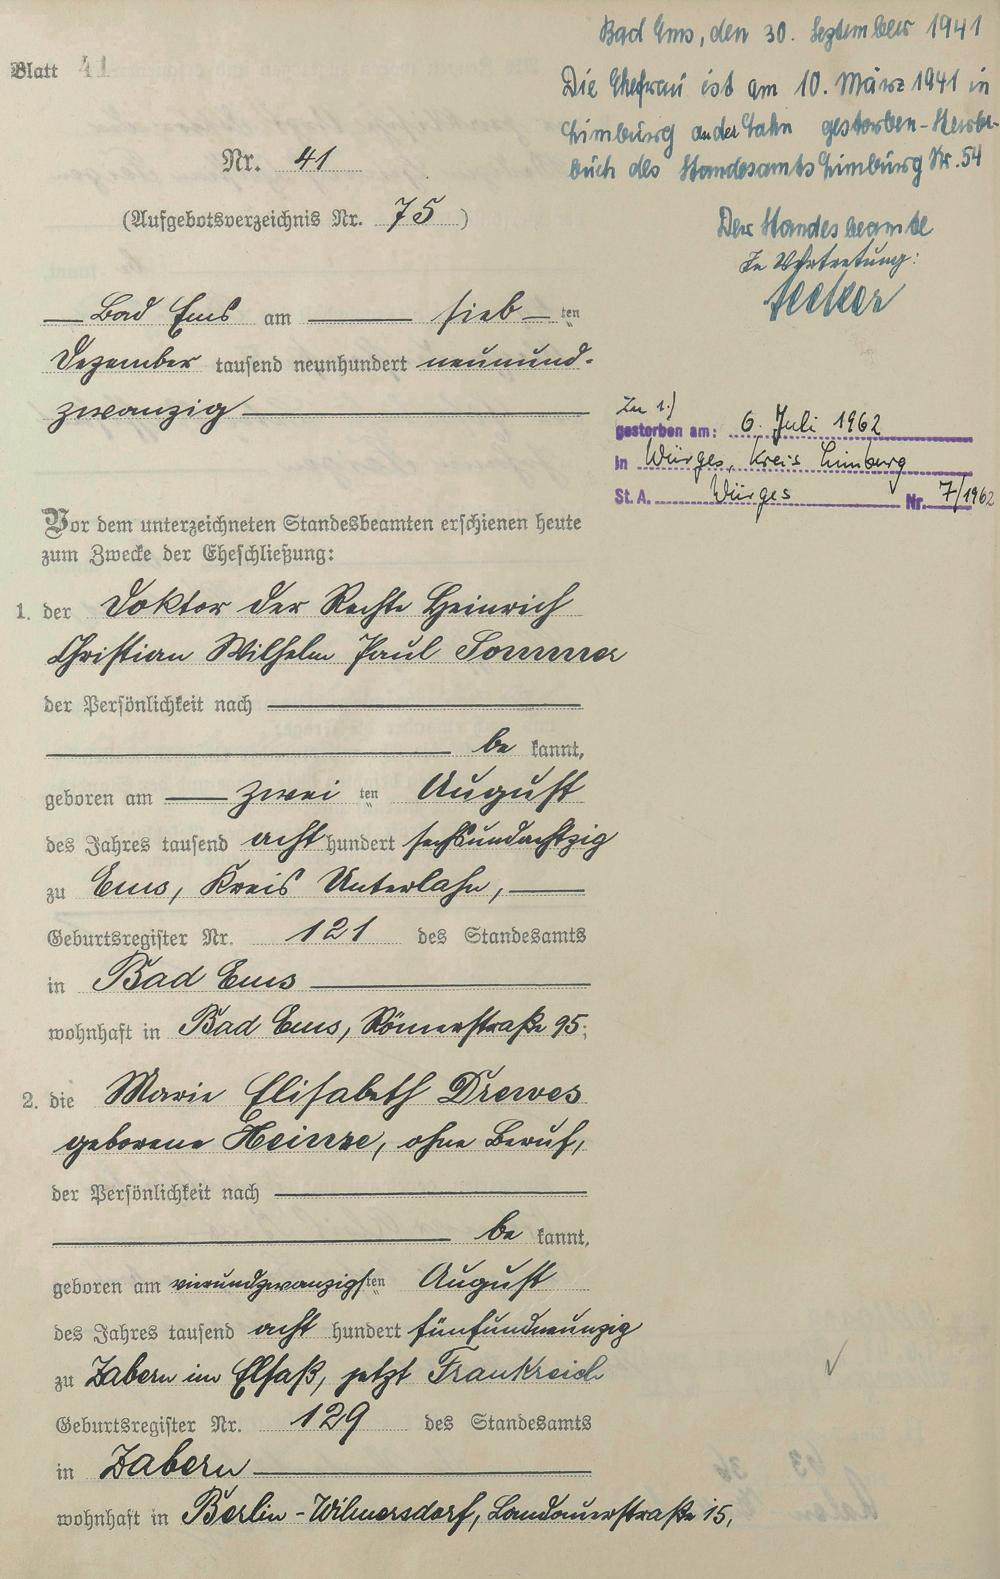 Blatt 41
Bad Ems, den 30. September 1941
Die Ehefrau ist am 10. März 1941 in
Limburg an der Lahn gestorben - Sterbe-
buch des Standesamts Limburg Nr. 54
Der Standesbeamte
In Vertretung:
Nr. 41
(Aufgebotsverzeichnis Nr. 75)
Bad Ems am sieb ten
Dezember tausend neunhundert neunund-
zwanzig
Zu 1.)
gestorben am: 6. Juli 1962
in Würges, Kreis Limburg
St. A. Würges Nr. 7/1962
Vor dem unterzeichneten Standesbeamten erschienen heute
zum Zwecke der Eheschließung:
1. der Doktor der Rechte Heinrich
Christian Wilhelm Paul Sommer
der Persönlichkeit nach
be kannt,
geboren am zwei ten August
des Jahres tausend acht hundert sechsundachtzig
zu Ems, Kreis Unterlahn,
Geburtsregister Nr. 121 des Standesamts
in Bad Ems
wohnhaft in Bad Ems, Römerstraße 95;
2. die Marie Elisabeth Drewes
geborene Heinze, ohne Beruf,
der Persönlichkeit nach
be kannt,
geboren am vierundzwanzigsten August
des Jahres tausend acht hundert fünfundneunzig
zu Zabern im Elsaß, jetzt Frankreich
Geburtsregister Nr. 129 des Standesamts
in Zabern
wohnhaft in Berlin-Wilmersdorf, Landauerstraße 15,